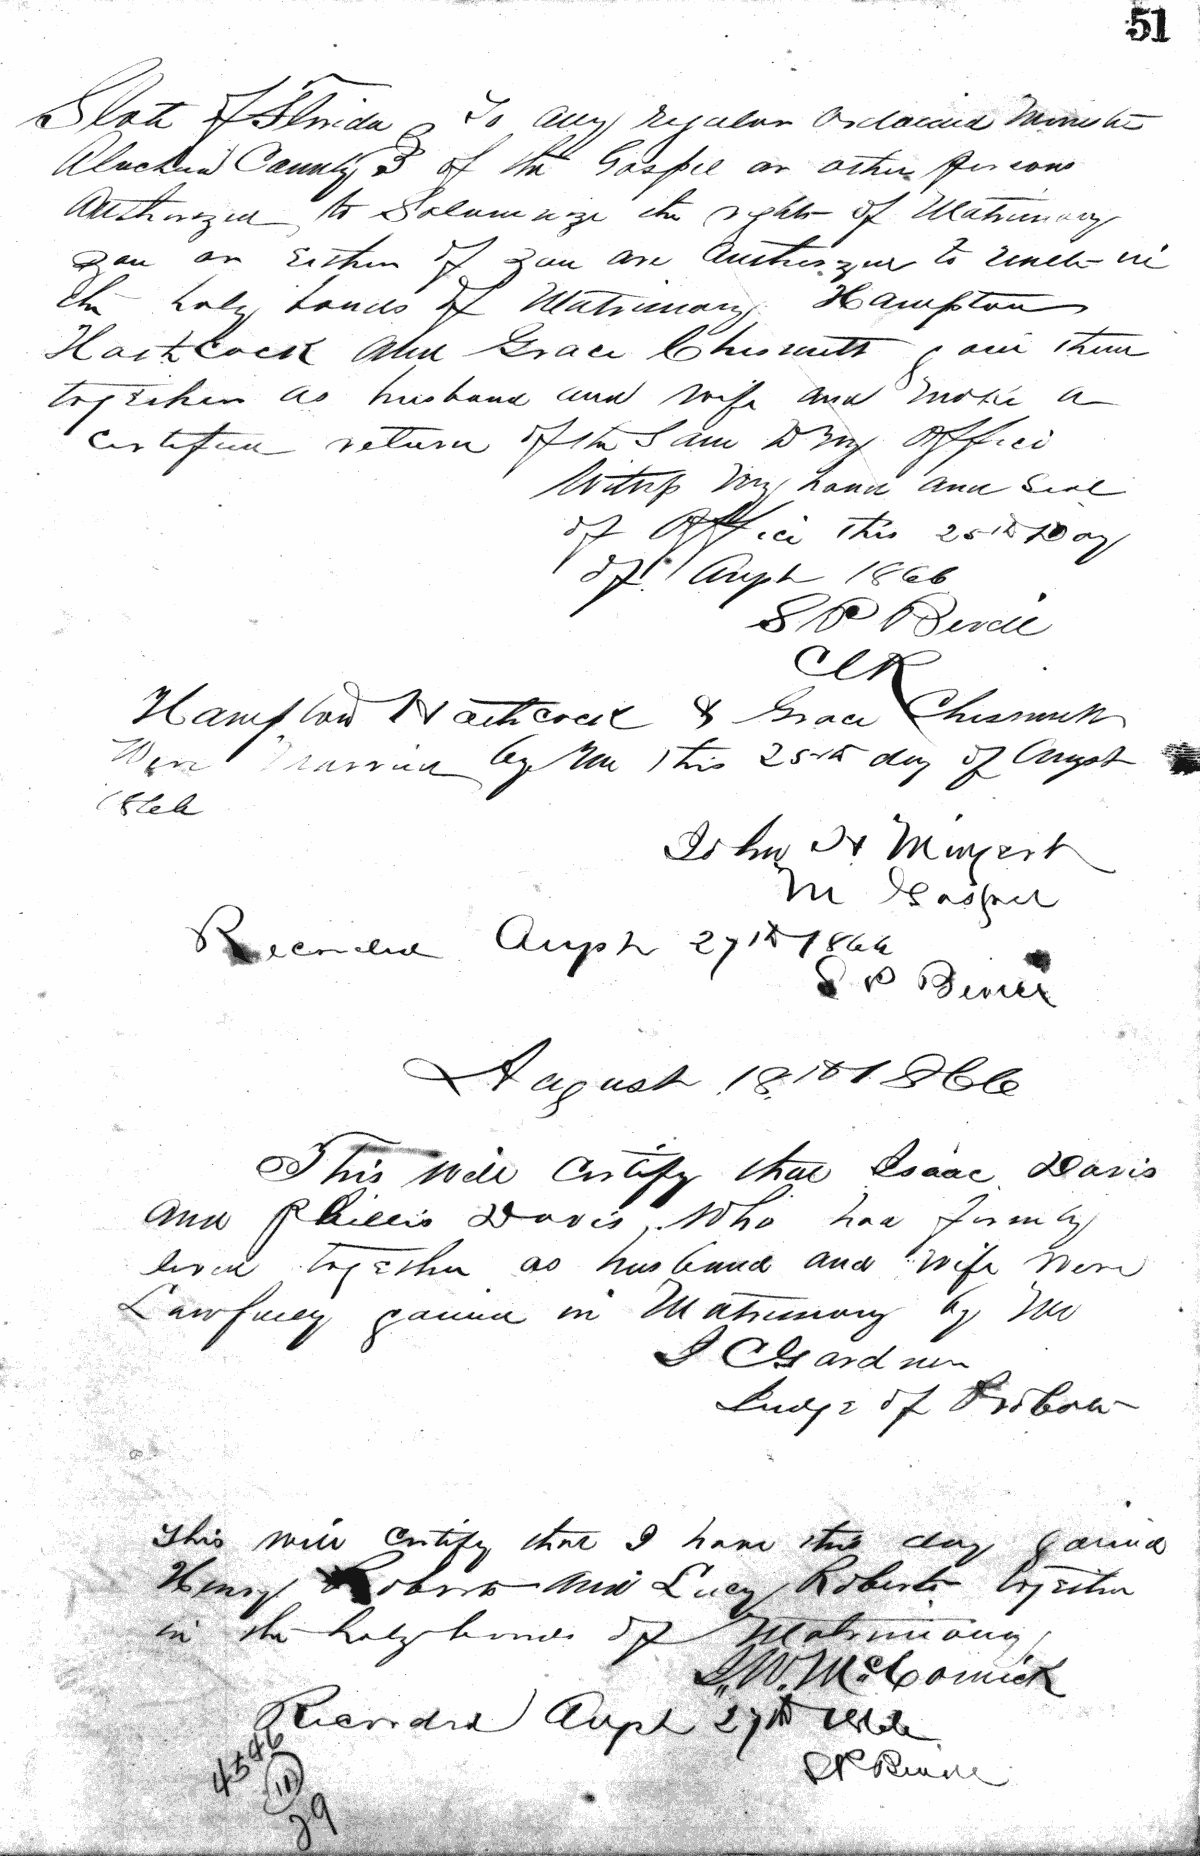 51
State of Florida } To any regular ordained Minister
Alachua County } of the Gospel or other persons
Authorized to Solumnize the rights of Matrimony
you or Either of you are Authorized to unite in
the holy bonds of Matrimony Hampton
Hathcock and Grace Chesnutt join them
together as husband and wife and make a
certified return of the same to my office
Witness my hand and Seal
of office this 25th Day
of August 1866
S P
Clk
Hampton Hathcock & Grace Chesnutt
Were Married by me this 25th day of August
1866
John H
M Gospel
Recorded August 27th 1866
S P
August 18th 1866
This will certify that Isaac Davis
and Phillis Davis, Who had formerly
lived together as husband and wife were
Lawfully joined in Matrimony by me
J C Gardner
Judge of Probate
This will certify that I have this day joined
Henry Roberts and Lucy Roberts together
in the holy bonds of Matrimony
J. W. McCormick
Recorded August 27th 1866
S P
4546
11
29